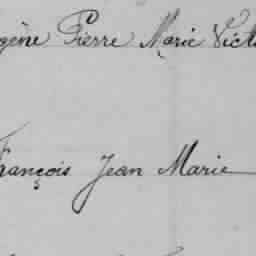 gène Pierre Marie Vict
François Jean Marie